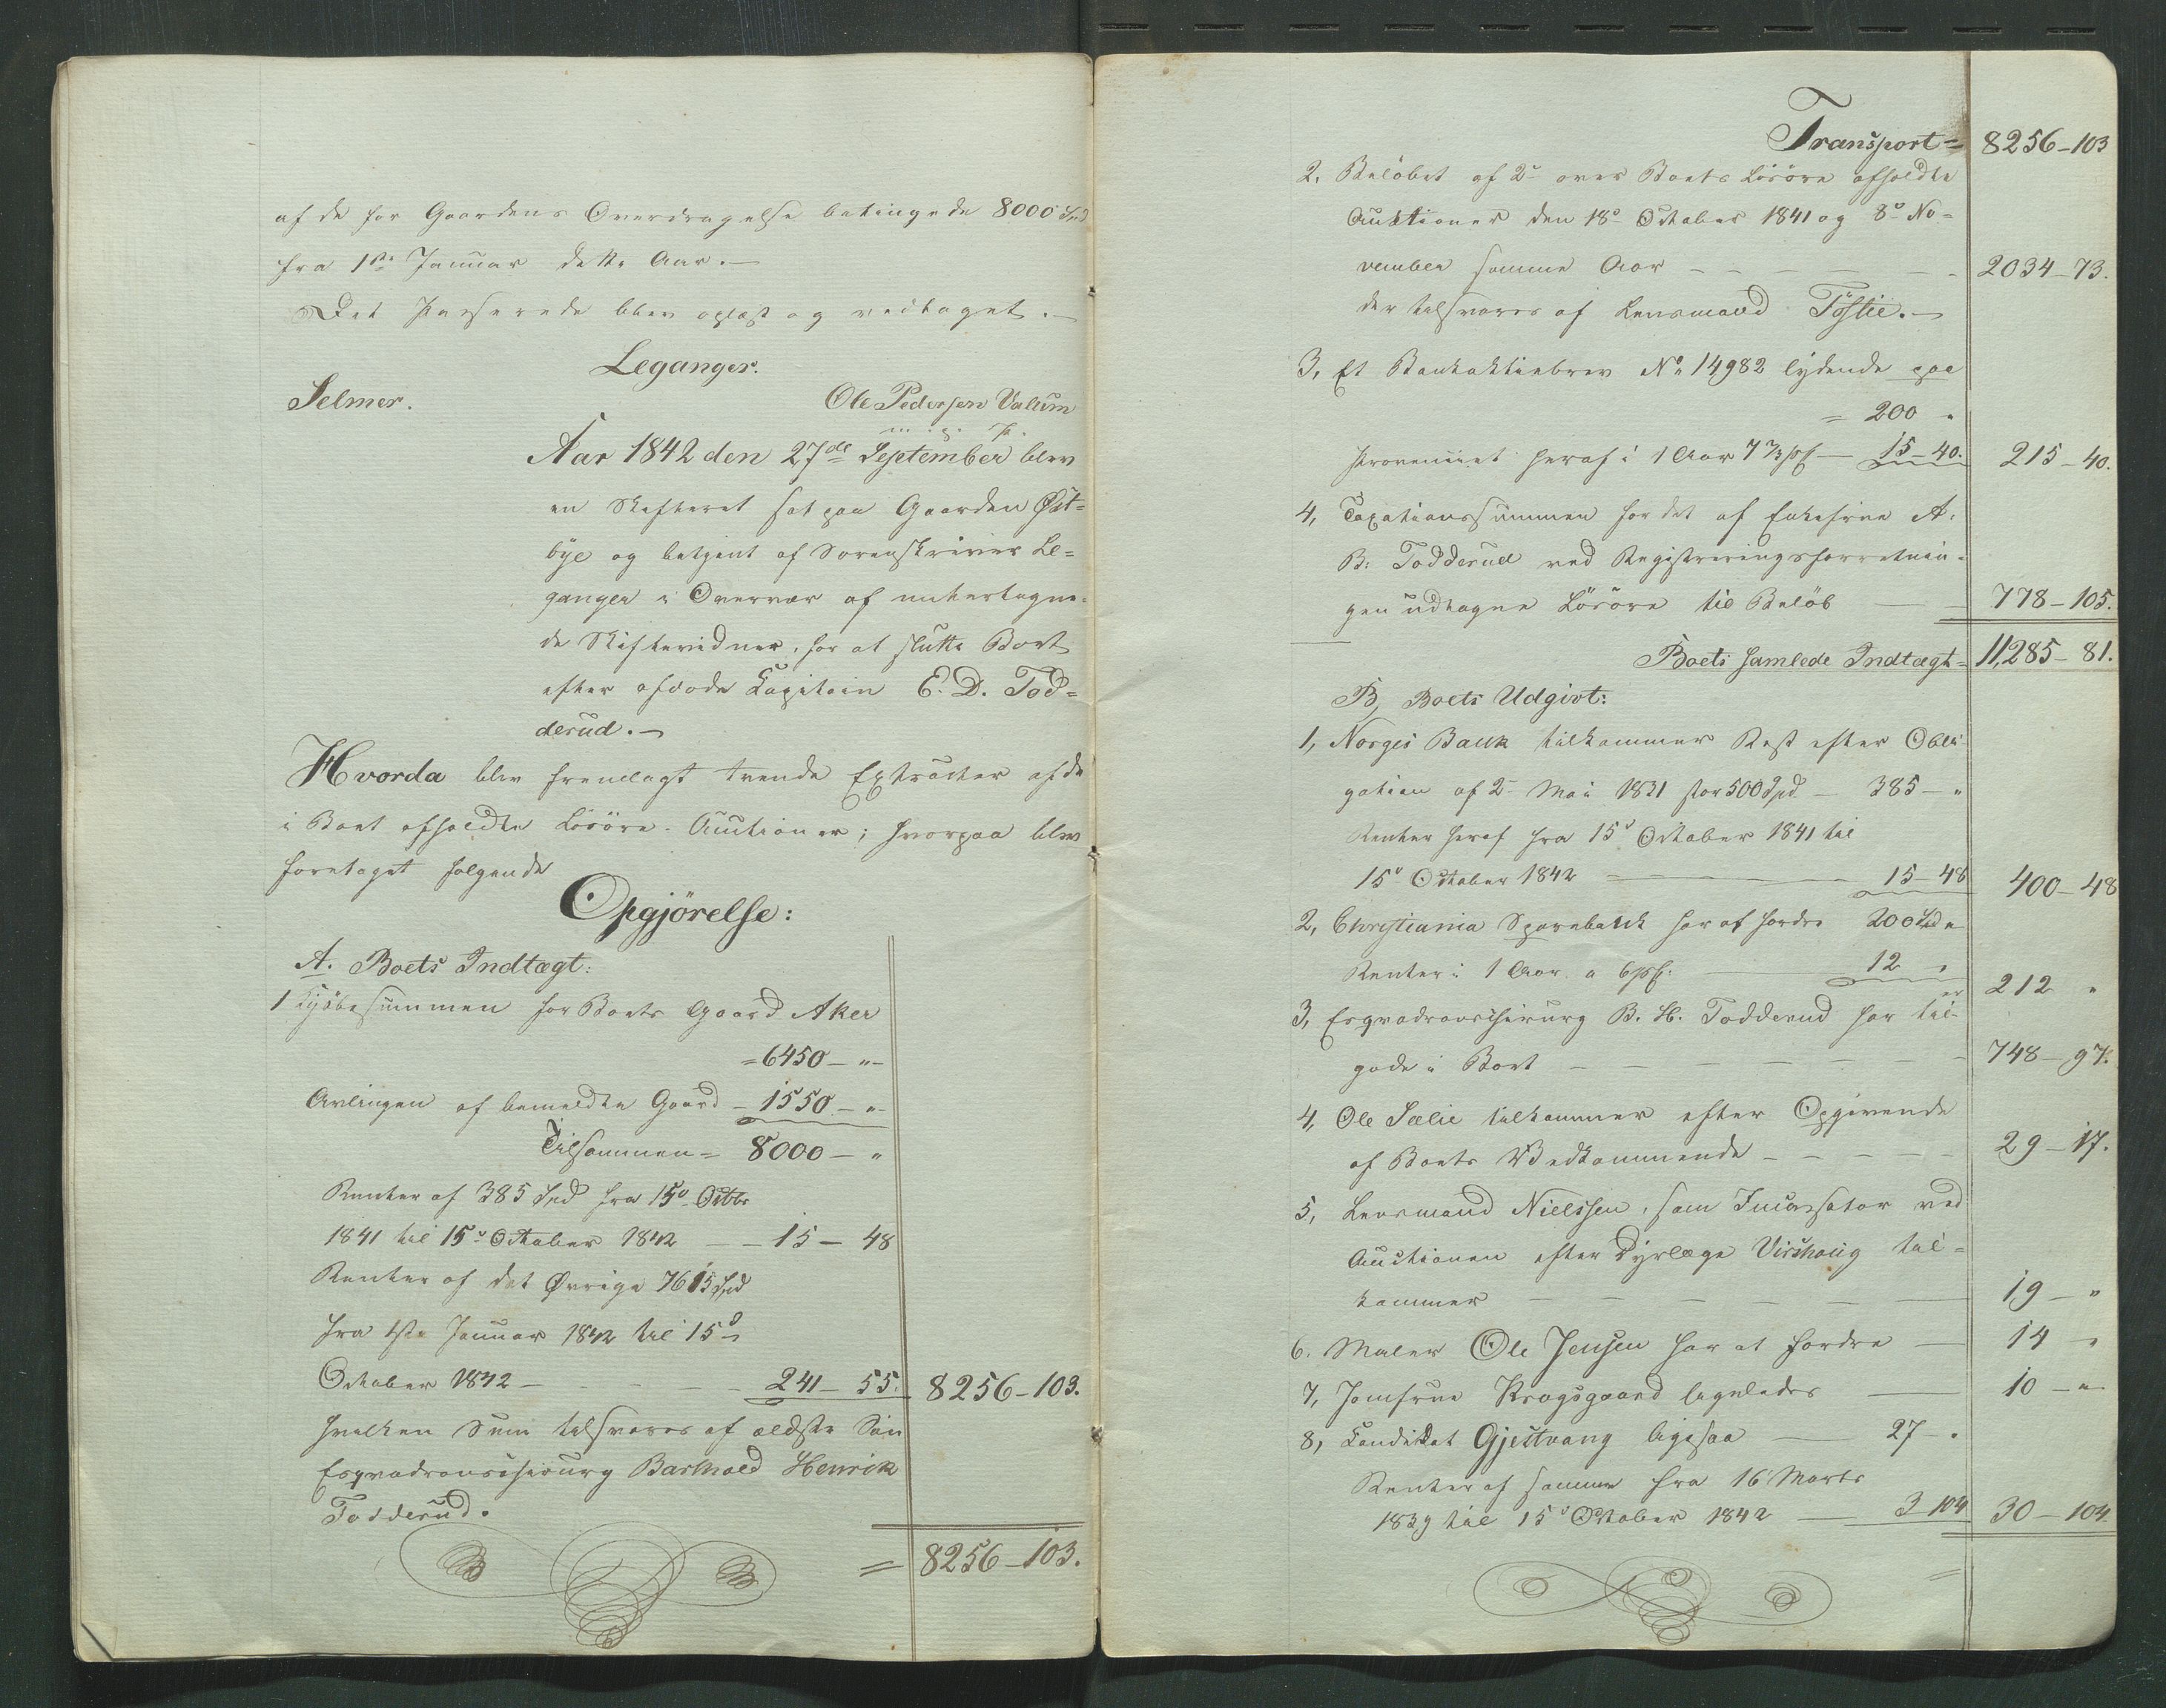 af de for Gaardens Overdragelse betingede 8000 Spd
fra 1ste Januar dette Aar.—
Det Passerede blev oplæst og vedtaget.—
Leganger.
Selmer. Ole Pedersen Valum
m. p. P.
Aar 1842 den 27de September blev
en Skifteret sat paa Gaarden Øst=
bye og betjent af Sorenskriver Le=
ganger i Overvær af undertegne=
de Skiftevidner, for at slutte Boet
efter afdøde Capitain E. D. Tod=
derud.—
Hvorda blev fremlagt trende Extracter af de
i Boet afholdte Lösöre-Auctioner; hvorpaa blev
foretaget følgende
Opgjörelse:
A. Boets Indtægt:
1 Kjöbesummen for Boets Gaard Aker
=6450—"—
Avlingen af bemeldte Gaard —1550—"—
Tilsammen= 8000—"
Renter af 385 Spd fra 15d Octbr
1841 til 15d October 1842 — 15— 48
Renter af det Øvrige 7615 Spd
fra 1ste Januar 1842 til 15d
October 1842 — 241— 55. 8256—103.
hvilken Sum tilsvares af ældste Søn
Esqvadronschirurg Barthold Henrik
Todderud.
= 8256—103.
Transport= 8256—103
2. Beløbet af 2de over Boets Lösöre afholdte
Auktioner den 18d October 1841 og 8d No=
vember samme Aar — 2034—73.
der tilsvares af Lensmand Töstie.—
3, Et Bankaktiebrev No 14982 lydende paa
= 200 "
Provenüet heraf i 1 Aar 7 7/10 pC — 15—40. 215—40.
4, Taxationssummen for det af Enkefrue A.
B. Todderud ved Registreringsforretnin=
gen udtagne Lösöre til Belöb — 778—105.
Boets samlede Indtægt= 11,285—81.
B, Boets Udgivt:
1, Norges Bank tilkommer Rest efter Obli=
gation af 2d Mai 1831 stor 500 Spd — 385—"
Renter heraf fra 15d October 1841 til
15d October 1842 — 15—48 400—48
2, Christiania Sparebank har at fordre 200 Spd "
Renter i 1 Aar a 6 pC: — 12 " 212 "
3, Esqvadronschirurg B. H. Todderud har til=
gode i Boet — 748—97.
4, Ole Sælie tilkommer efter Opgivende
af Boets Vedkommende — 29—17.
5, Lensmand Nielssen, som Incassator ved
Auctionen efter Dyrlæge Virshoug til=
kommer — 19—"
6. Maler Ole Jensen har at fordre — 14 "
7, Jomfrue Krogsgaard ligeledes — 10—"
8, Candidat Gjestvang ligesaa — 27 "
Renter af samme fra 16 Marts
1839 til 15d October 1842 — 3 104 30—104.
=